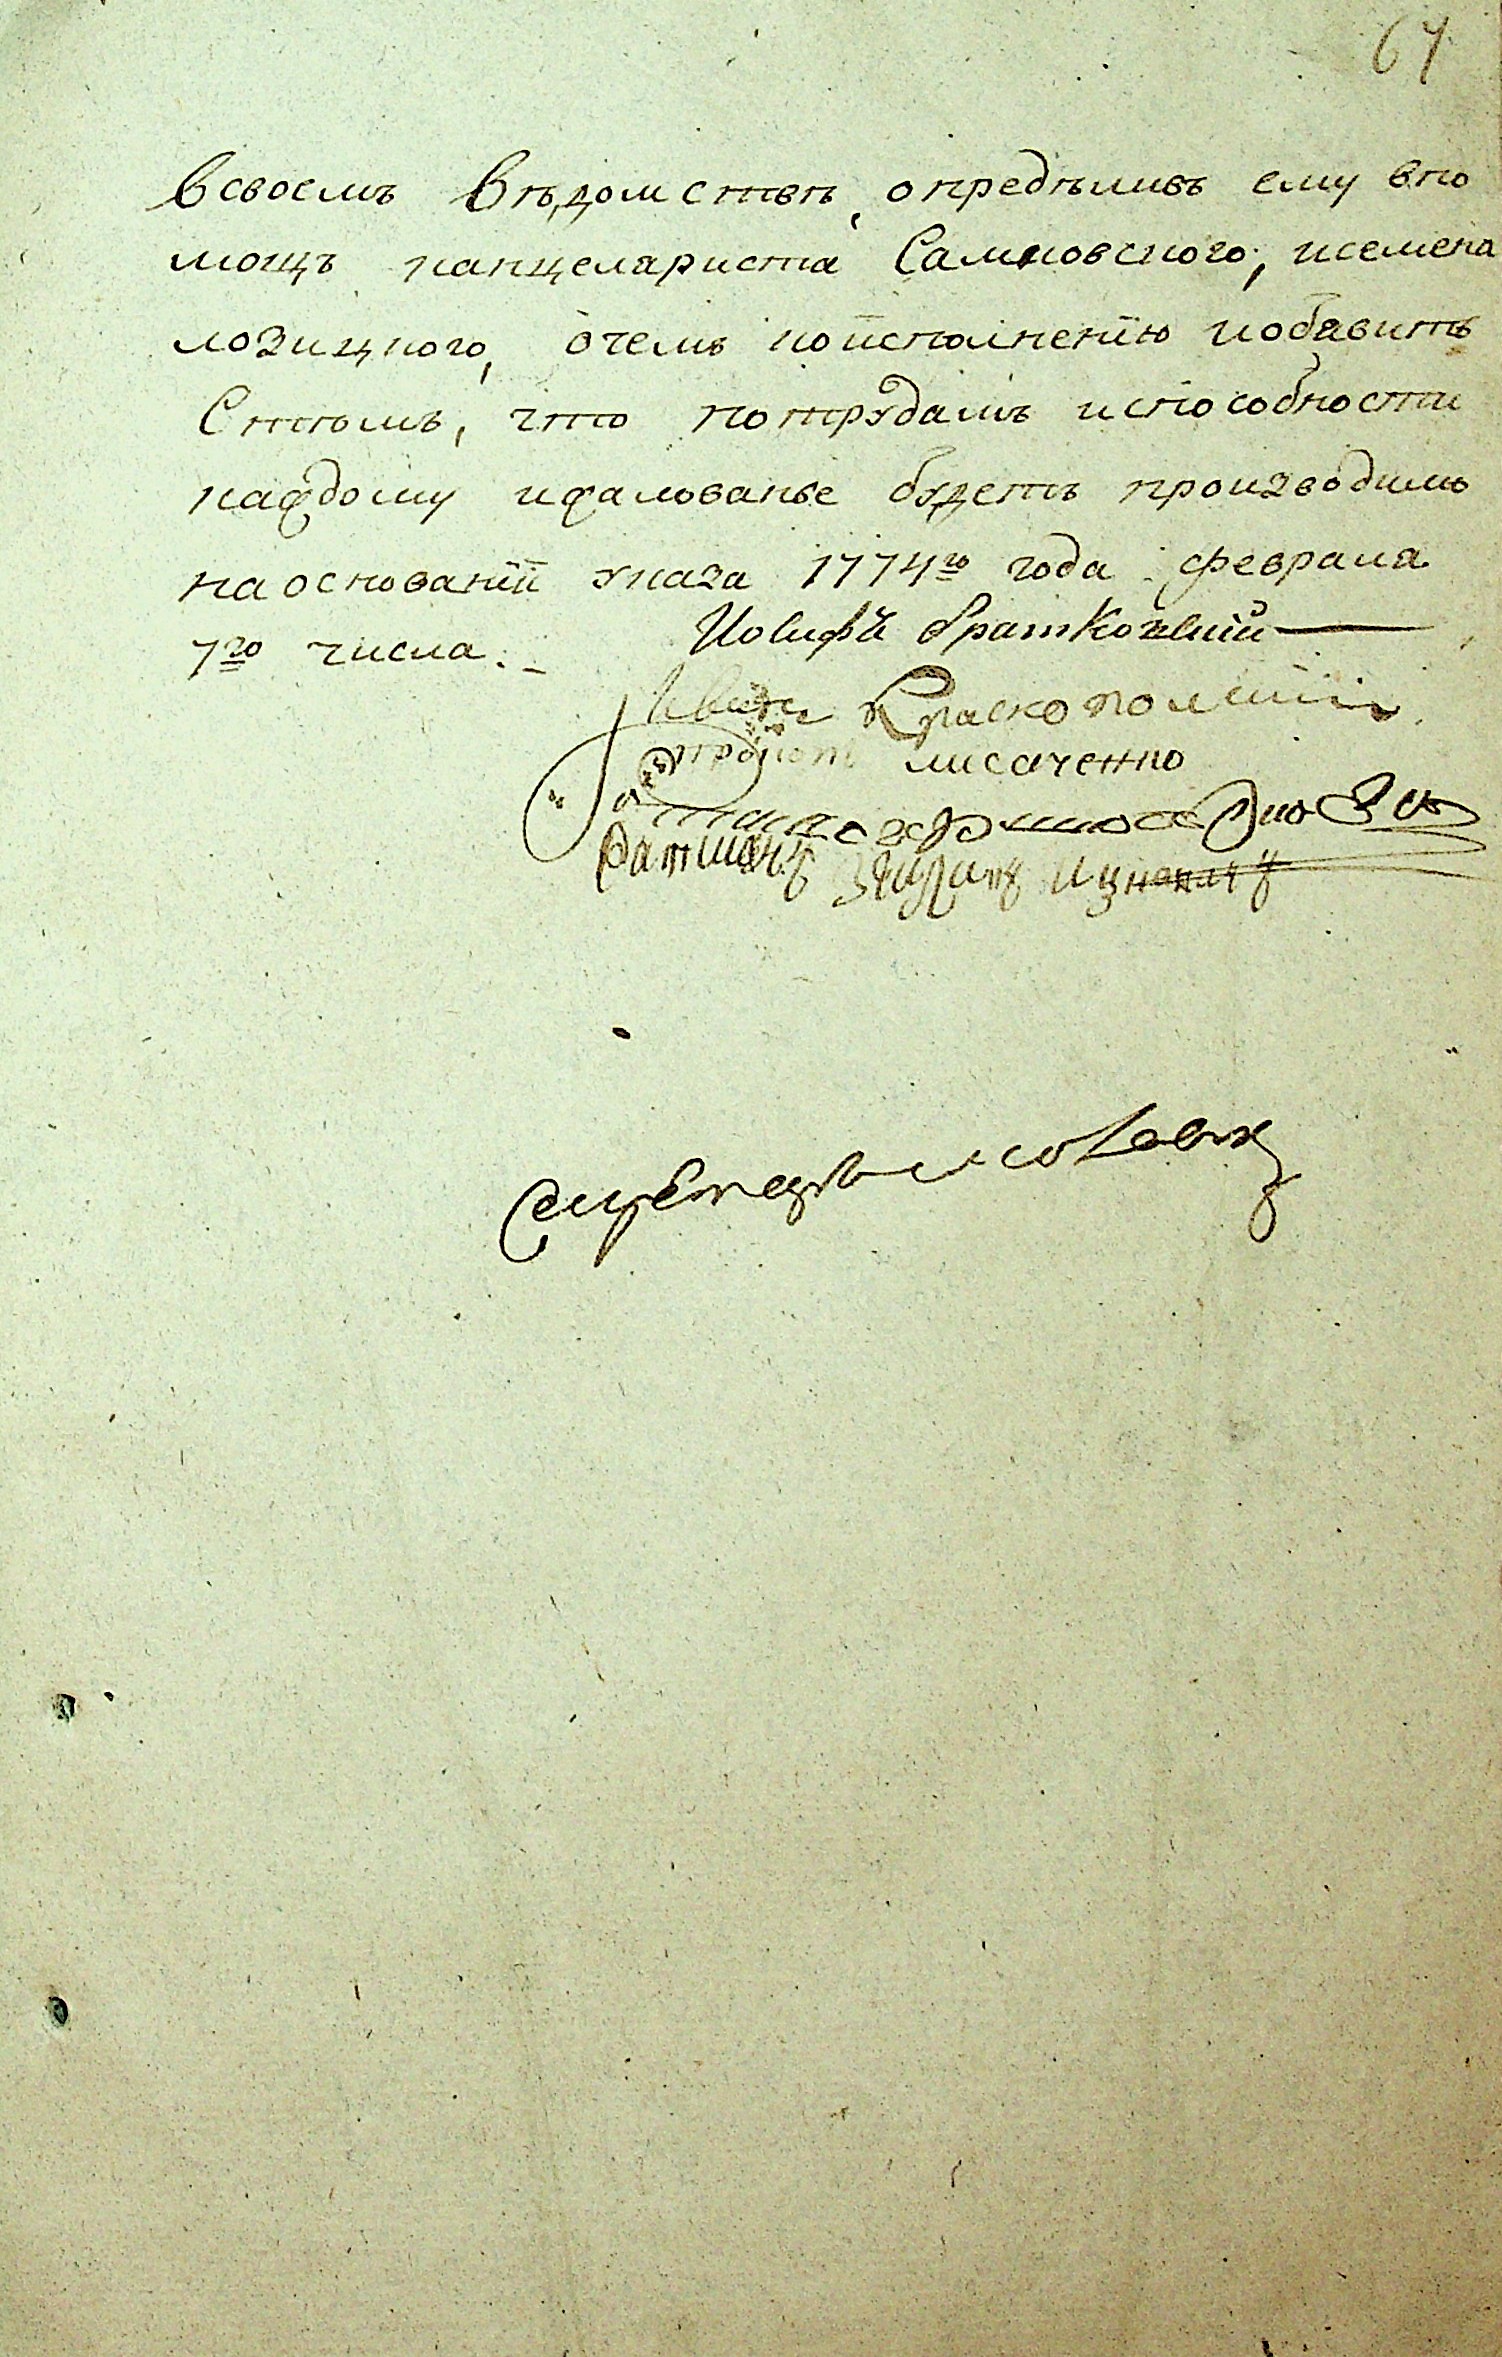 64
всвоемъ вѣдомствѣ, опредѣливъ ему впо
мощъ канцеляриста Самковского, исемена
лозицкого, очемъ коисполненїю иобавить
Стѣмъ, что потрудамъ испособности
каждому ижалованье будетъ производимо
наоснованїи указа 1774го года февраля
7го числа.
Иосифъ братковский
Иванъ Краскополский
лисаченко
Ратманъ
Секретарь